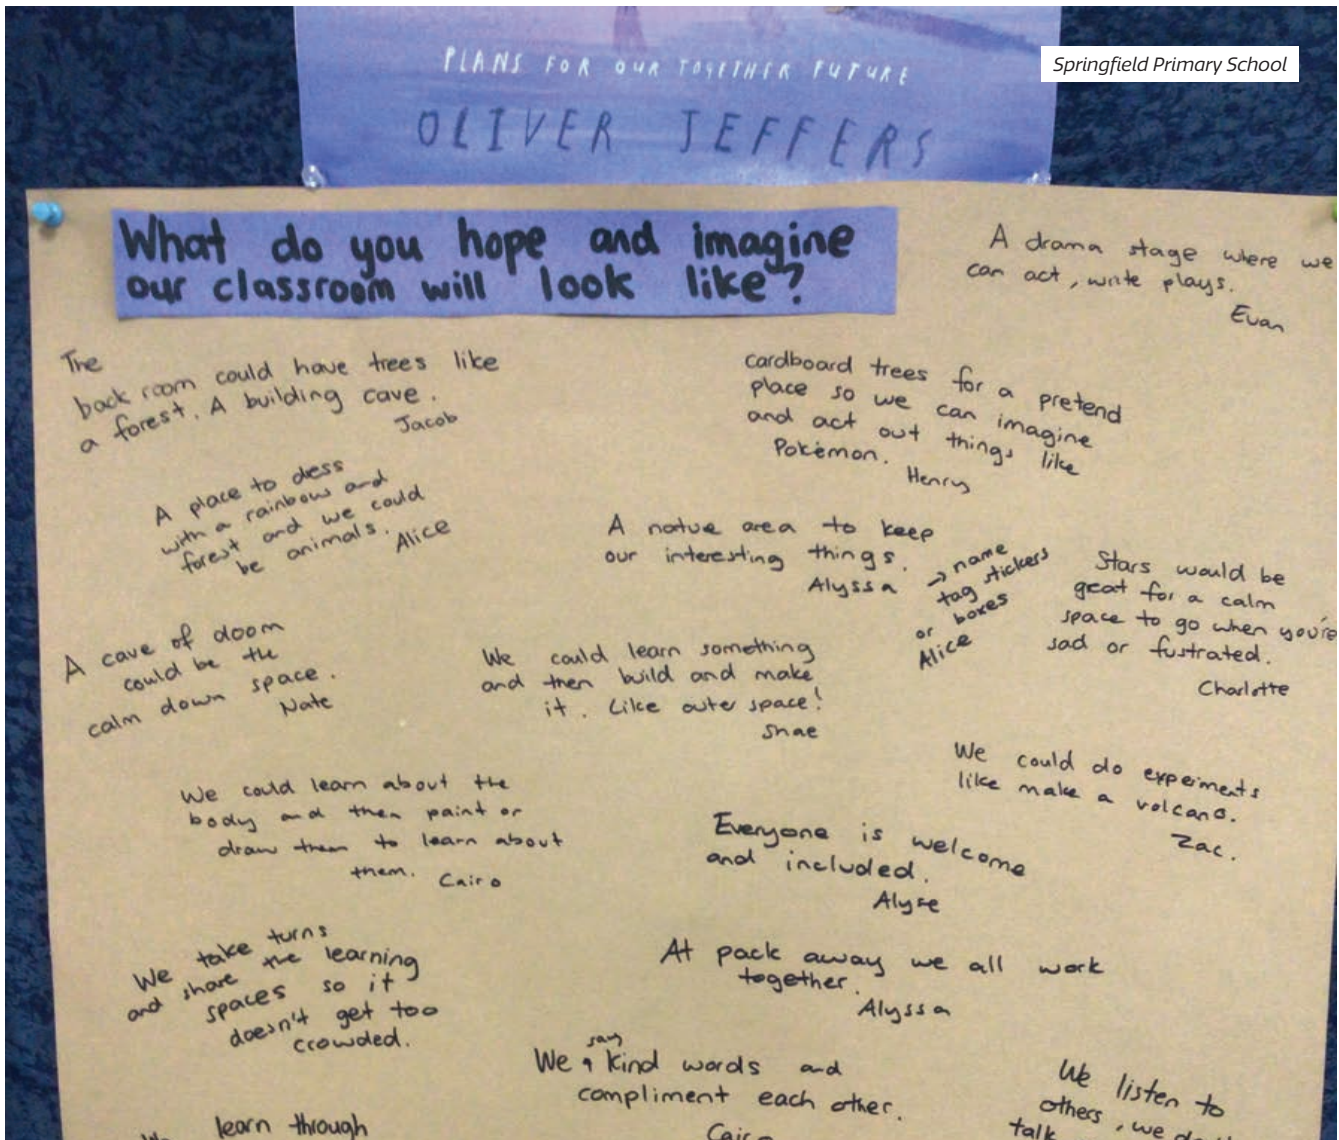 PLANS FOR OUR TOGETHER FUTURE
OLIVER JEFFERS
Springfield Primary School
What do you hope and imagine
our classroom will look like?
A drama stage where we
can act, write plays.
Evan
The
back room could have trees like
a forest. A building cave.
Jacob
cardboard trees for a pretend
place so we can imagine
and act out things like
Pokémon.
Henry
A place to dress
with a rainbow and
forest and we could
be animals.
Alice
A natue area to keep
our interesting things.
Alyssa
→ name
tag stickers
or boxes
Alice
Stars would be
great for a calm
space to go when you're
sad or fustrated.
Charlotte
A cave of doom
could be the
calm down space.
Nate
We could learn something
and then build and make
it. Like outer space!
Shae
We could do experiments
like make a volcano.
Zac.
We could learn about the
body and then paint or
draw them to learn about
them. Cairo
Everyone is welcome
and included.
Alyse
We take turns
and share the learning
spaces so it
doesn't get too
crowded.
At pack away we all work
together.
Alyssa
We say kind words and
compliment each other.
Cairo
We listen to
others, we don't
talk
learn through